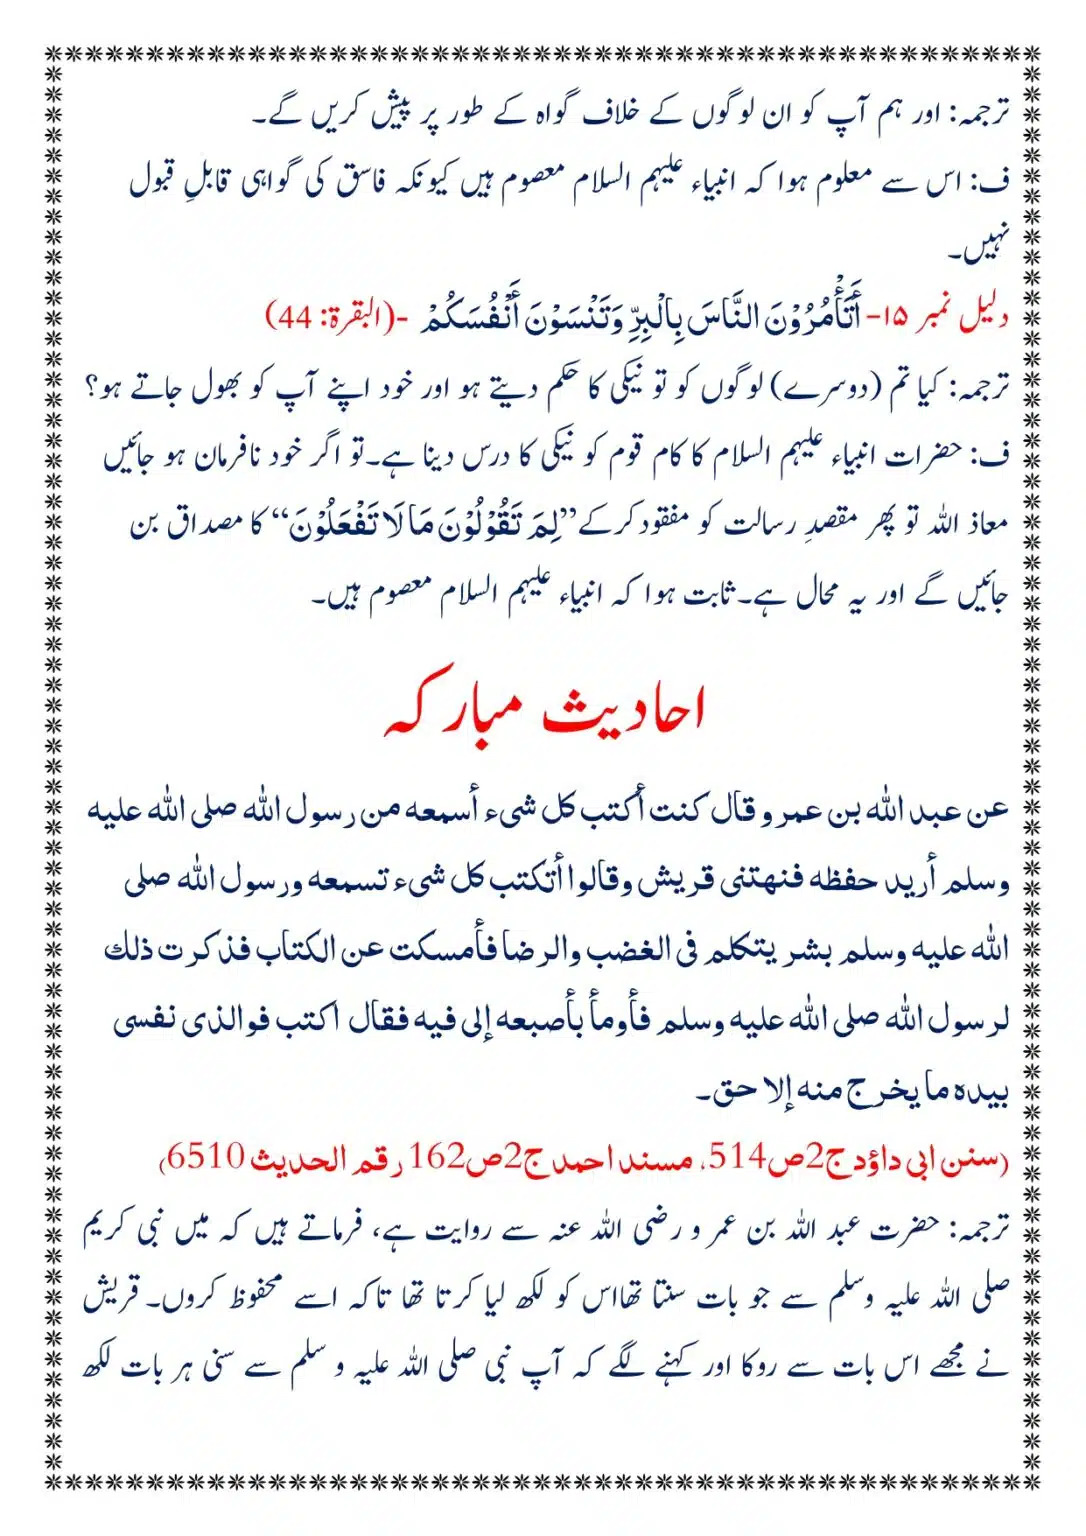 ترجمہ: اور ہم آپ کو ان لوگوں کے خلاف گواہ کے طور پر پیش کریں گے۔
ف: اس سے معلوم ہوا کہ انبیاء علیہم السلام معصوم ہیں کیونکہ فاسق کی گواہی قابلِ قبول
نہیں۔
دلیل نمبر ۱۵- أَتَأْمُرُوْنَ النَّاسَ بِالْبِرِّ وَتَنْسَوْنَ أَنْفُسَكُمْ -(البقرۃ: 44)
ترجمہ: کیا تم (دوسرے) لوگوں کو تو نیکی کا حکم دیتے ہو اور خود اپنے آپ کو بھول جاتے ہو؟
ف: حضرات انبیاء علیہم السلام کا کام قوم کو نیکی کا درس دینا ہے۔تو اگر خود نافرمان ہو جائیں
معاذ اللہ تو پھر مقصدِ رسالت کو مفقود کرکے ”لِمَ تَقُوْلُوْنَ مَا لَا تَفْعَلُوْنَ“ کا مصداق بن
جائیں گے اور یہ محال ہے۔ ثابت ہوا کہ انبیاء علیہم السلام معصوم ہیں۔
احادیث مبارکہ
عن عبد الله بن عمرو قال كنت أكتب كل شیء أسمعه من رسول الله صلى الله عليه
وسلم أريد حفظه فنهتنی قريش وقالوا أتكتب كل شیء تسمعه ورسول الله صلى
الله عليه وسلم بشر يتكلم فی الغضب والرضا فأمسكت عن الكتاب فذكرت ذلك
لرسول الله صلى الله عليه وسلم فأومأ بأصبعه إلى فيه فقال اكتب فوالذی نفسی
بيده ما يخرج منه إلا حق۔
(سنن ابی داؤد ج2ص514، مسند احمد ج2ص162 رقم الحدیث 6510)
ترجمہ: حضرت عبد اللہ بن عمر و رضی اللہ عنہ سے روایت ہے، فرماتے ہیں کہ میں نبی کریم
صلی اللہ علیہ وسلم سے جو بات سنتا تھااس کو لکھ لیا کرتا تھا تاکہ اسے محفوظ کروں۔ قریش
نے مجھے اس بات سے روکا اور کہنے لگے کہ آپ نبی صلی اللہ علیہ و سلم سے سنی ہر بات لکھ